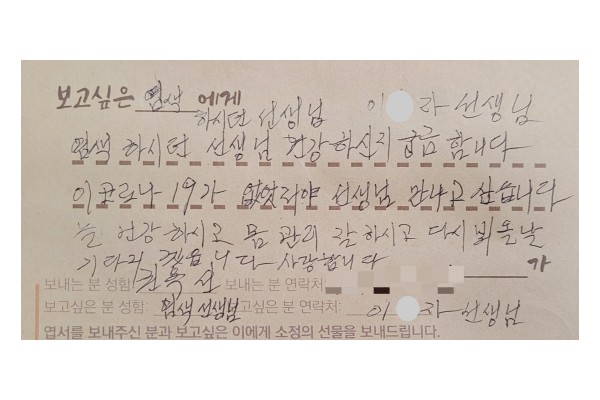 보고싶은 염색 에게
하시던 선생님 이 자 선생님
염색 하시던 선생님 건강하신지 궁금 합니다
이 코로나 19가 없었져야 선생님 만나고 싶습니다
늘 건강 하시고 몸 관리 잘 하시고 다시 뵈올날
기다리 겠습니다 사랑합니다 가
보내는 분 성함: 보내는 분 연락처:
보고싶은 분 성함: 염색 선생님 보고싶은 분 연락처: 이 자 선생님
엽서를 보내주신 분과 보고싶은 이에게 소정의 선물을 보내드립니다.